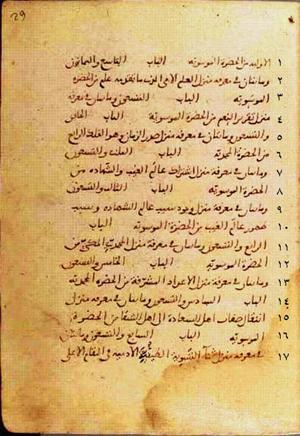 29
١ الاولية من الحضرة الموسوية الباب التاسع والثمانون
٢ ومائتان في معرفة منزل العلم الامي الذي ما تقدمه علم من الحضرة
٣ الموسوية الباب التسعون ومائتان في معرفة
٤ منزل تقرير النعم من الحضرة الموسوية الباب الحادي
٥ والتسعون ومائتان في معرفة منزل صدر الزمان وهو الفلك الرابع
٦ من الحضرة المحمدية الباب الثاني والتسعون
٧ ومائتان في معرفة منزل اشتراك عالم الغيب والشهادة من
٨ الحضرة الموسوية الباب الثالث والتسعون
٩ ومائتان في معرفة منزل وجود سبب عالم الشهادة وسبب
١٠ ظهور عالم الغيب من الحضرة الموسوية الباب
١١ الرابع والتسعون ومائتان في معرفة منزل المحمدي المكي من
١٢ الحضرة الموسوية الباب الخامس والتسعون
١٣ ومائتان في معرفة منزل الاعداد المشرفة من الحضرة المحمدية
١٤ الباب السادس والتسعون ومائتان في معرفة منزل
١٥ انتقال صفات اهل السعادة الى اهل الشقا من الحضرة
١٦ الموسوية الباب السابع والتسعون ومائتان
١٧ في معرفة منزل ثنا التسوية الطينية الادمية في المقام الاعلى